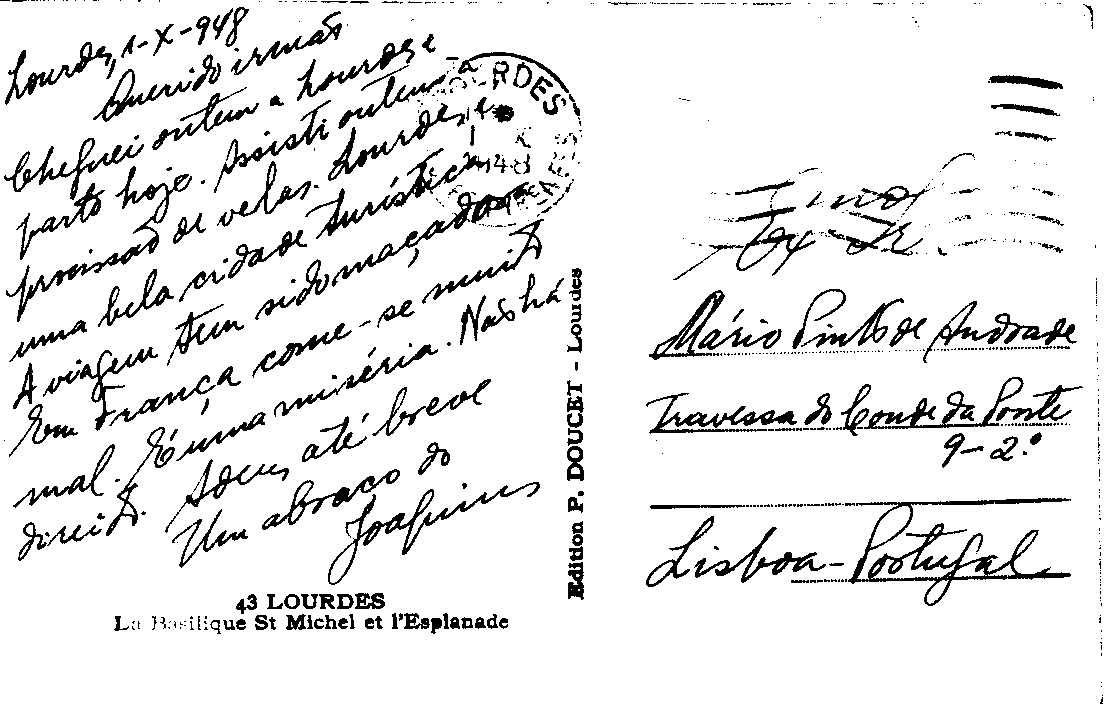 Lourdes, 1-X-948
Querido irmão
Cheguei ontem a Lourdes e
parto hoje. Assisti ontem a
procissão de velas. Lourdes é
uma bela cidade turística
A viagem tem sido maçadora
Em França come-se muito
mal. É uma miséria. Não há
direito. Adeus, até breve
Um abraço do
Joaquim
43 LOURDES
La Basilique St Michel et l'Esplanade
Edition P. DOUCET - Lourdes
LOURDES
Ex.mo Sr.
Mário Pinto de Andrade
Travessa do Conde da Ponte
9-2.º
Lisboa-Portugal